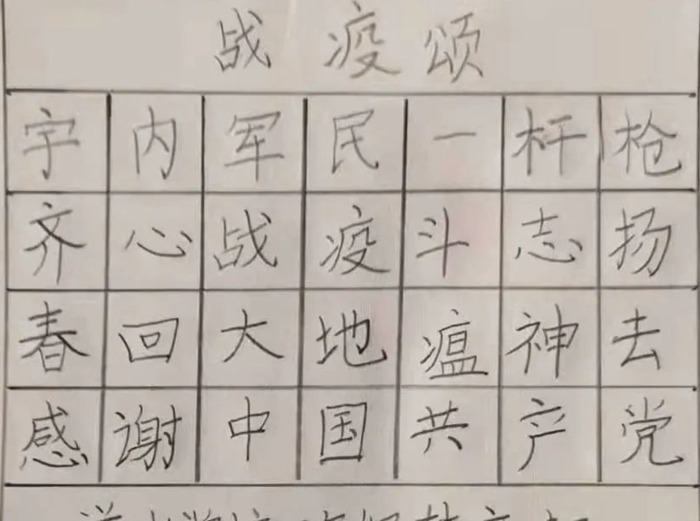 战疫颂
宇内军民一杆枪
齐心战疫斗志扬
春回大地瘟神去
感谢中国共产党